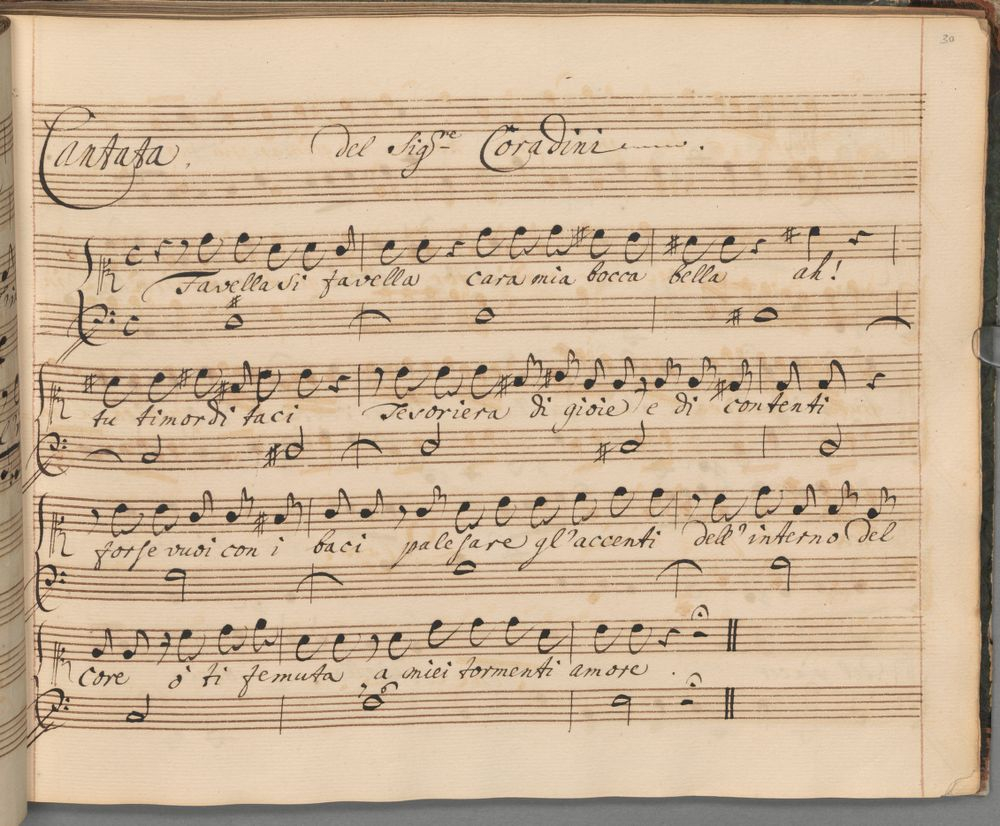 30
Cantata. del Sigre Coradini
Favella si favella cara mia bocca bella ah!
tu ti mordi taci Tesoriera di gioie e di contenti
forse vuoi con i baci palesare gl'accenti dell'interno del
core ò ti fe muta a miei tormenti amore.